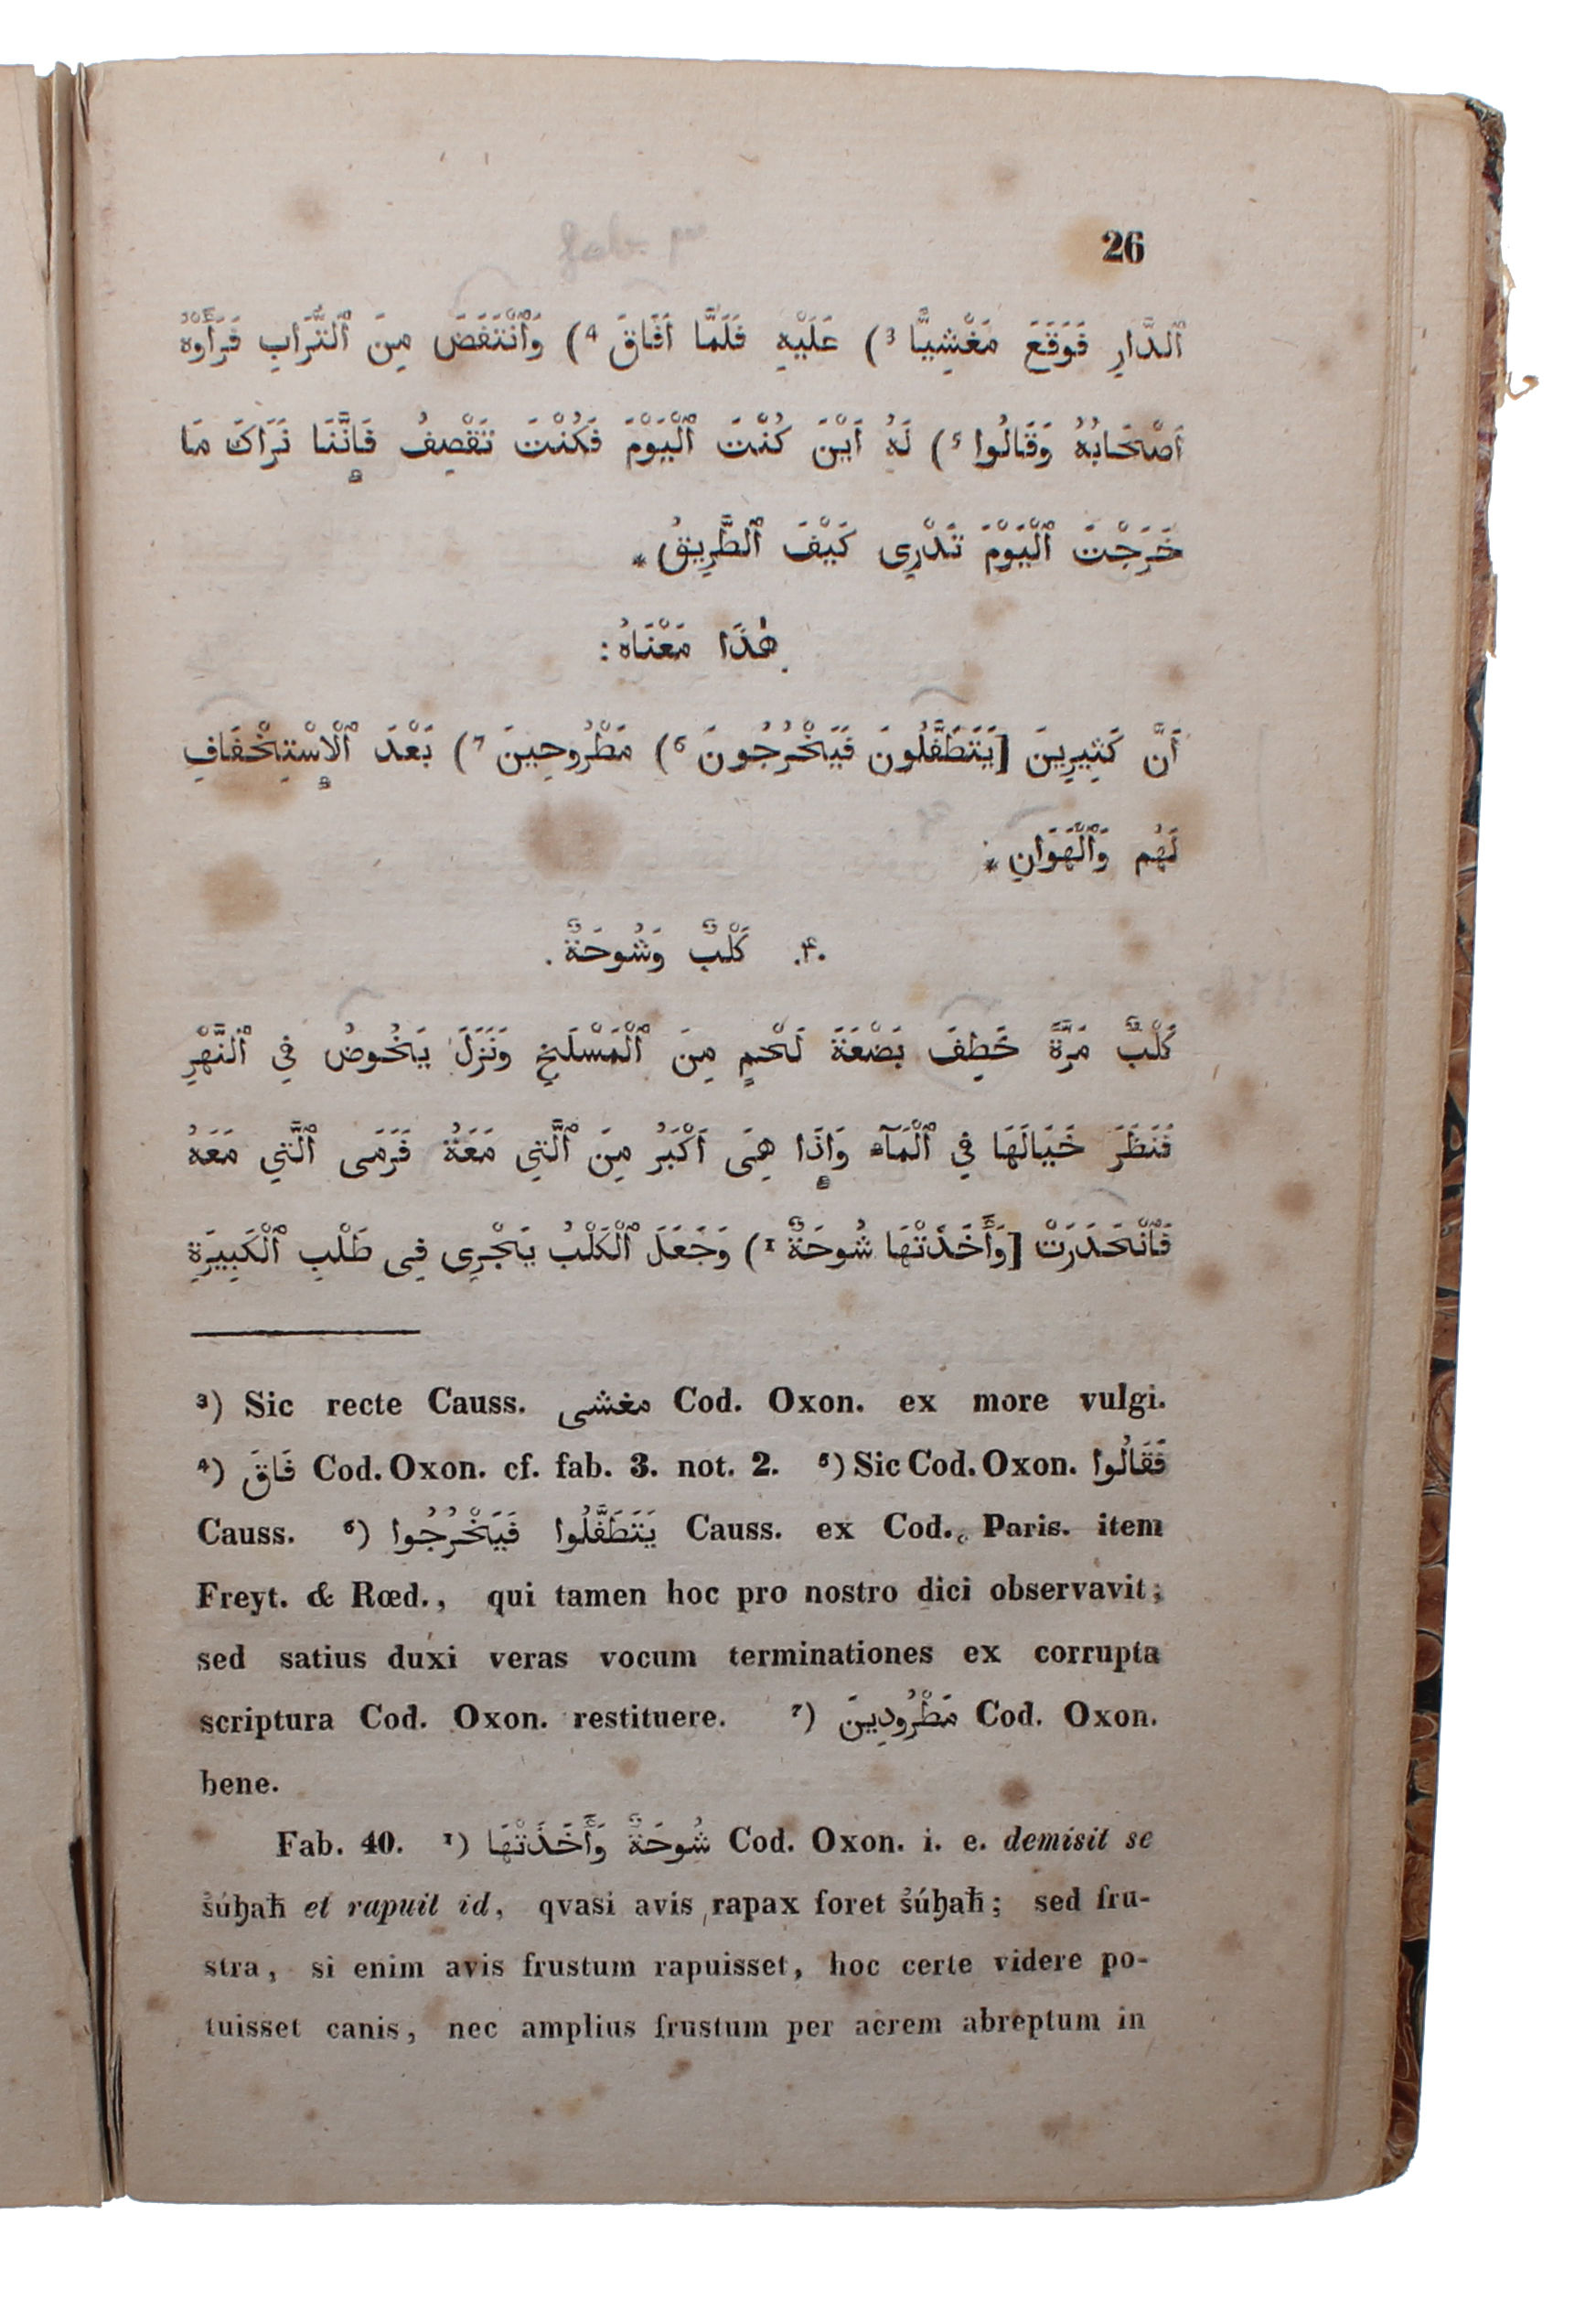 26
ٱلدَّارِ فَوَقَعَ مَغْشِيًّا ³) عَلَيْهِ فَلَمَّا اَفَاقَ ⁴) وَٱنْتَفَضَ مِنَ ٱلتُّرَابِ فَرَأَوْهُ
اَصْحَابُهُ وَقَالُوا ⁵) لَهُ اَيْنَ كُنْتَ ٱلْيَوْمَ فَكُنْتَ تَقْصِفُ فَإِنَّنَا نَرَاكَ مَا
خَرَجْتَ ٱلْيَوْمَ تَدْرِى كَيْفَ ٱلطَّرِيقُ *
هٰذَا مَعْنَاهُ :
اَنَّ كَثِيرِينَ [يَتَطَفَّلُونَ فَيَخْرُجُونَ ⁶) مَطْرُوحِينَ ⁷) بَعْدَ ٱلْإِسْتِخْفَافِ
لَهُم وَٱلْهَوَانِ *
.۴۰ كَلْبٌ وَشُوحَةٌ .
كَلْبٌ مَرَّةً خَطِفَ بَضْعَةَ لَحْمٍ مِنَ ٱلْمَسْلَخِ وَنَزَلَ يَخُوضُ فِي ٱلنَّهْرِ
فَنَظَرَ خَيَالَهَا فِي ٱلْمَآء وَإِذَا هِىَ اَكْبَرُ مِنَ ٱلَّتِي مَعَهُ فَرَمَى ٱلَّتِي مَعَهُ
فَٱنْحَدَرَتْ [وَأَخَذَتْهَا شُوحَةٌ ¹) وَجَعَلَ ٱلْكَلْبُ يَجْرِى فِى طَلْبِ ٱلْكَبِيرَةِ
³) Sic recte Causs. مغشى Cod. Oxon. ex more vulgi.
⁴) فَاقَ Cod. Oxon. cf. fab. 3. not. 2. ⁵) Sic Cod. Oxon. فَقَالُوا
Causs. ⁶) يَتَطَفَّلُوا فَيَخْرُجُوا Causs. ex Cod. Paris. item
Freyt. & Rœd., qui tamen hoc pro nostro dici observavit;
sed satius duxi veras vocum terminationes ex corrupta
scriptura Cod. Oxon. restituere. ⁷) مَطْرُودِينَ Cod. Oxon.
bene.
Fab. 40. ¹) شُوحَةٌ وَأَخَذَتْهَا Cod. Oxon. i. e. demisit se
šúḫaħ et rapuit id, qvasi avis rapax foret šúḫaħ; sed fru-
stra, si enim avis frustum rapuisset, hoc certe videre po-
tuisset canis, nec amplius frustum per aërem abreptum in